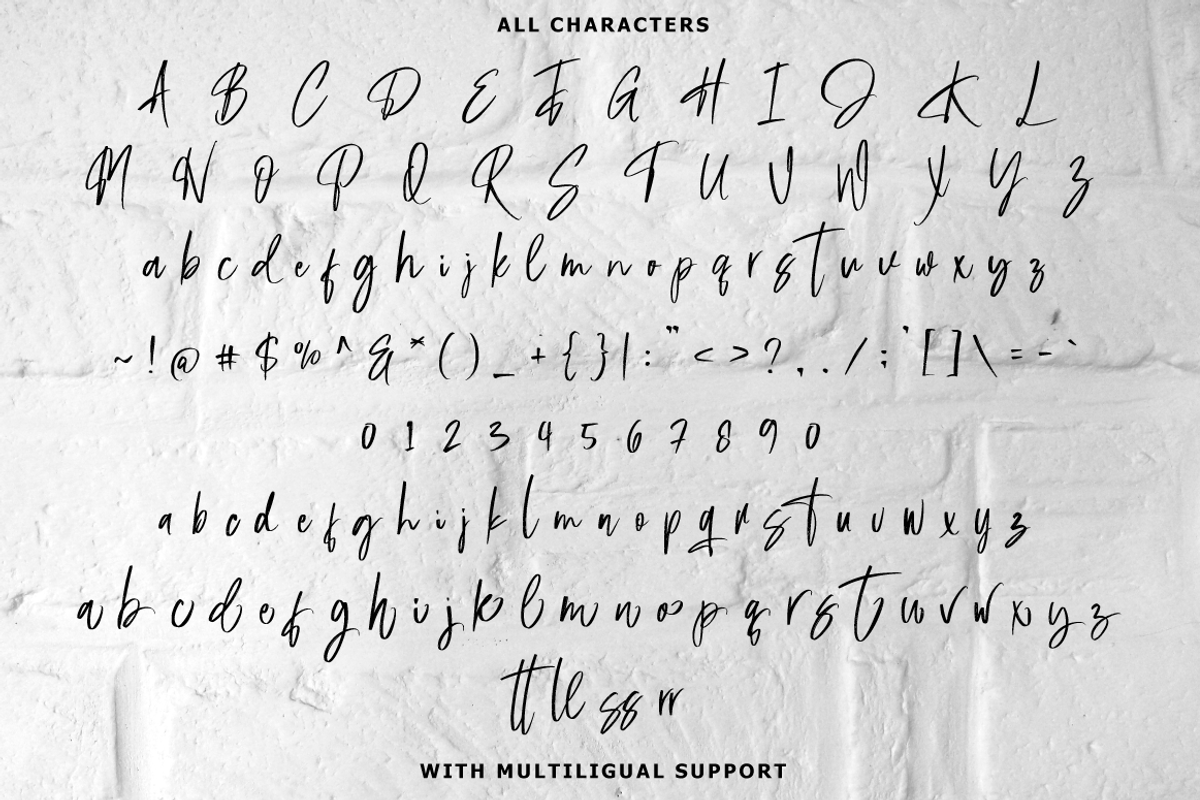 ALL CHARACTERS
A B C D E F G H I J K L
M N O P Q R S T U V W X Y Z
a b c d e f g h i j k l m n o p q r s t u v w x y z
~ ! @ # $ % ^ & * ( ) _ + { } | : " < > ? , . / ; ' [ ] \ = - `
0 1 2 3 4 5 6 7 8 9 0
a b c d e f g h i j k l m n o p q r s t u v w x y z
a b c d e f g h i j k l m n o p q r s t u v w x y z
tt ll ss rr
WITH MULTILIGUAL SUPPORT